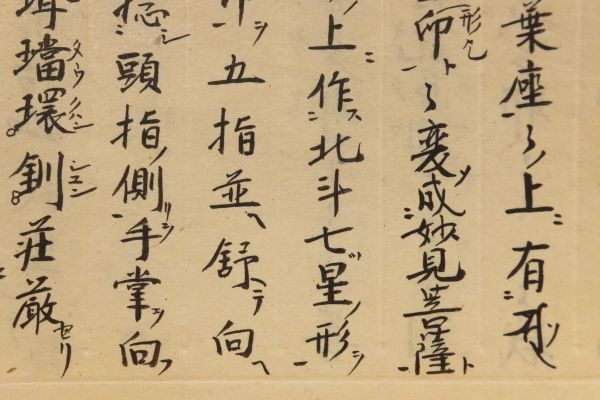 葉座〻ノ上ニ有
印ト〻変メ成妙見菩薩ト
上ニ作ス北斗七星ノ形ヲ
シ五指並ヘ舒テ向ヘ
捻シ頭指ノ側リシ手掌ヲ向フ
耳璫タウ環クハン釧シユン荘厳セリ